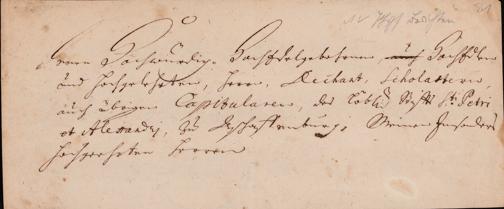 Denen Hochwürdig. Hochedelgebohrnen auch Hochedlen
und hochgelehrten, Herrn, Dechant, Scholastern,
auch übrigen Capitularen, des löbl. Stifts St. Petri
et Alexandri, zu Aschaffenburg, Meinen Insonders
hochgeehrten Herren